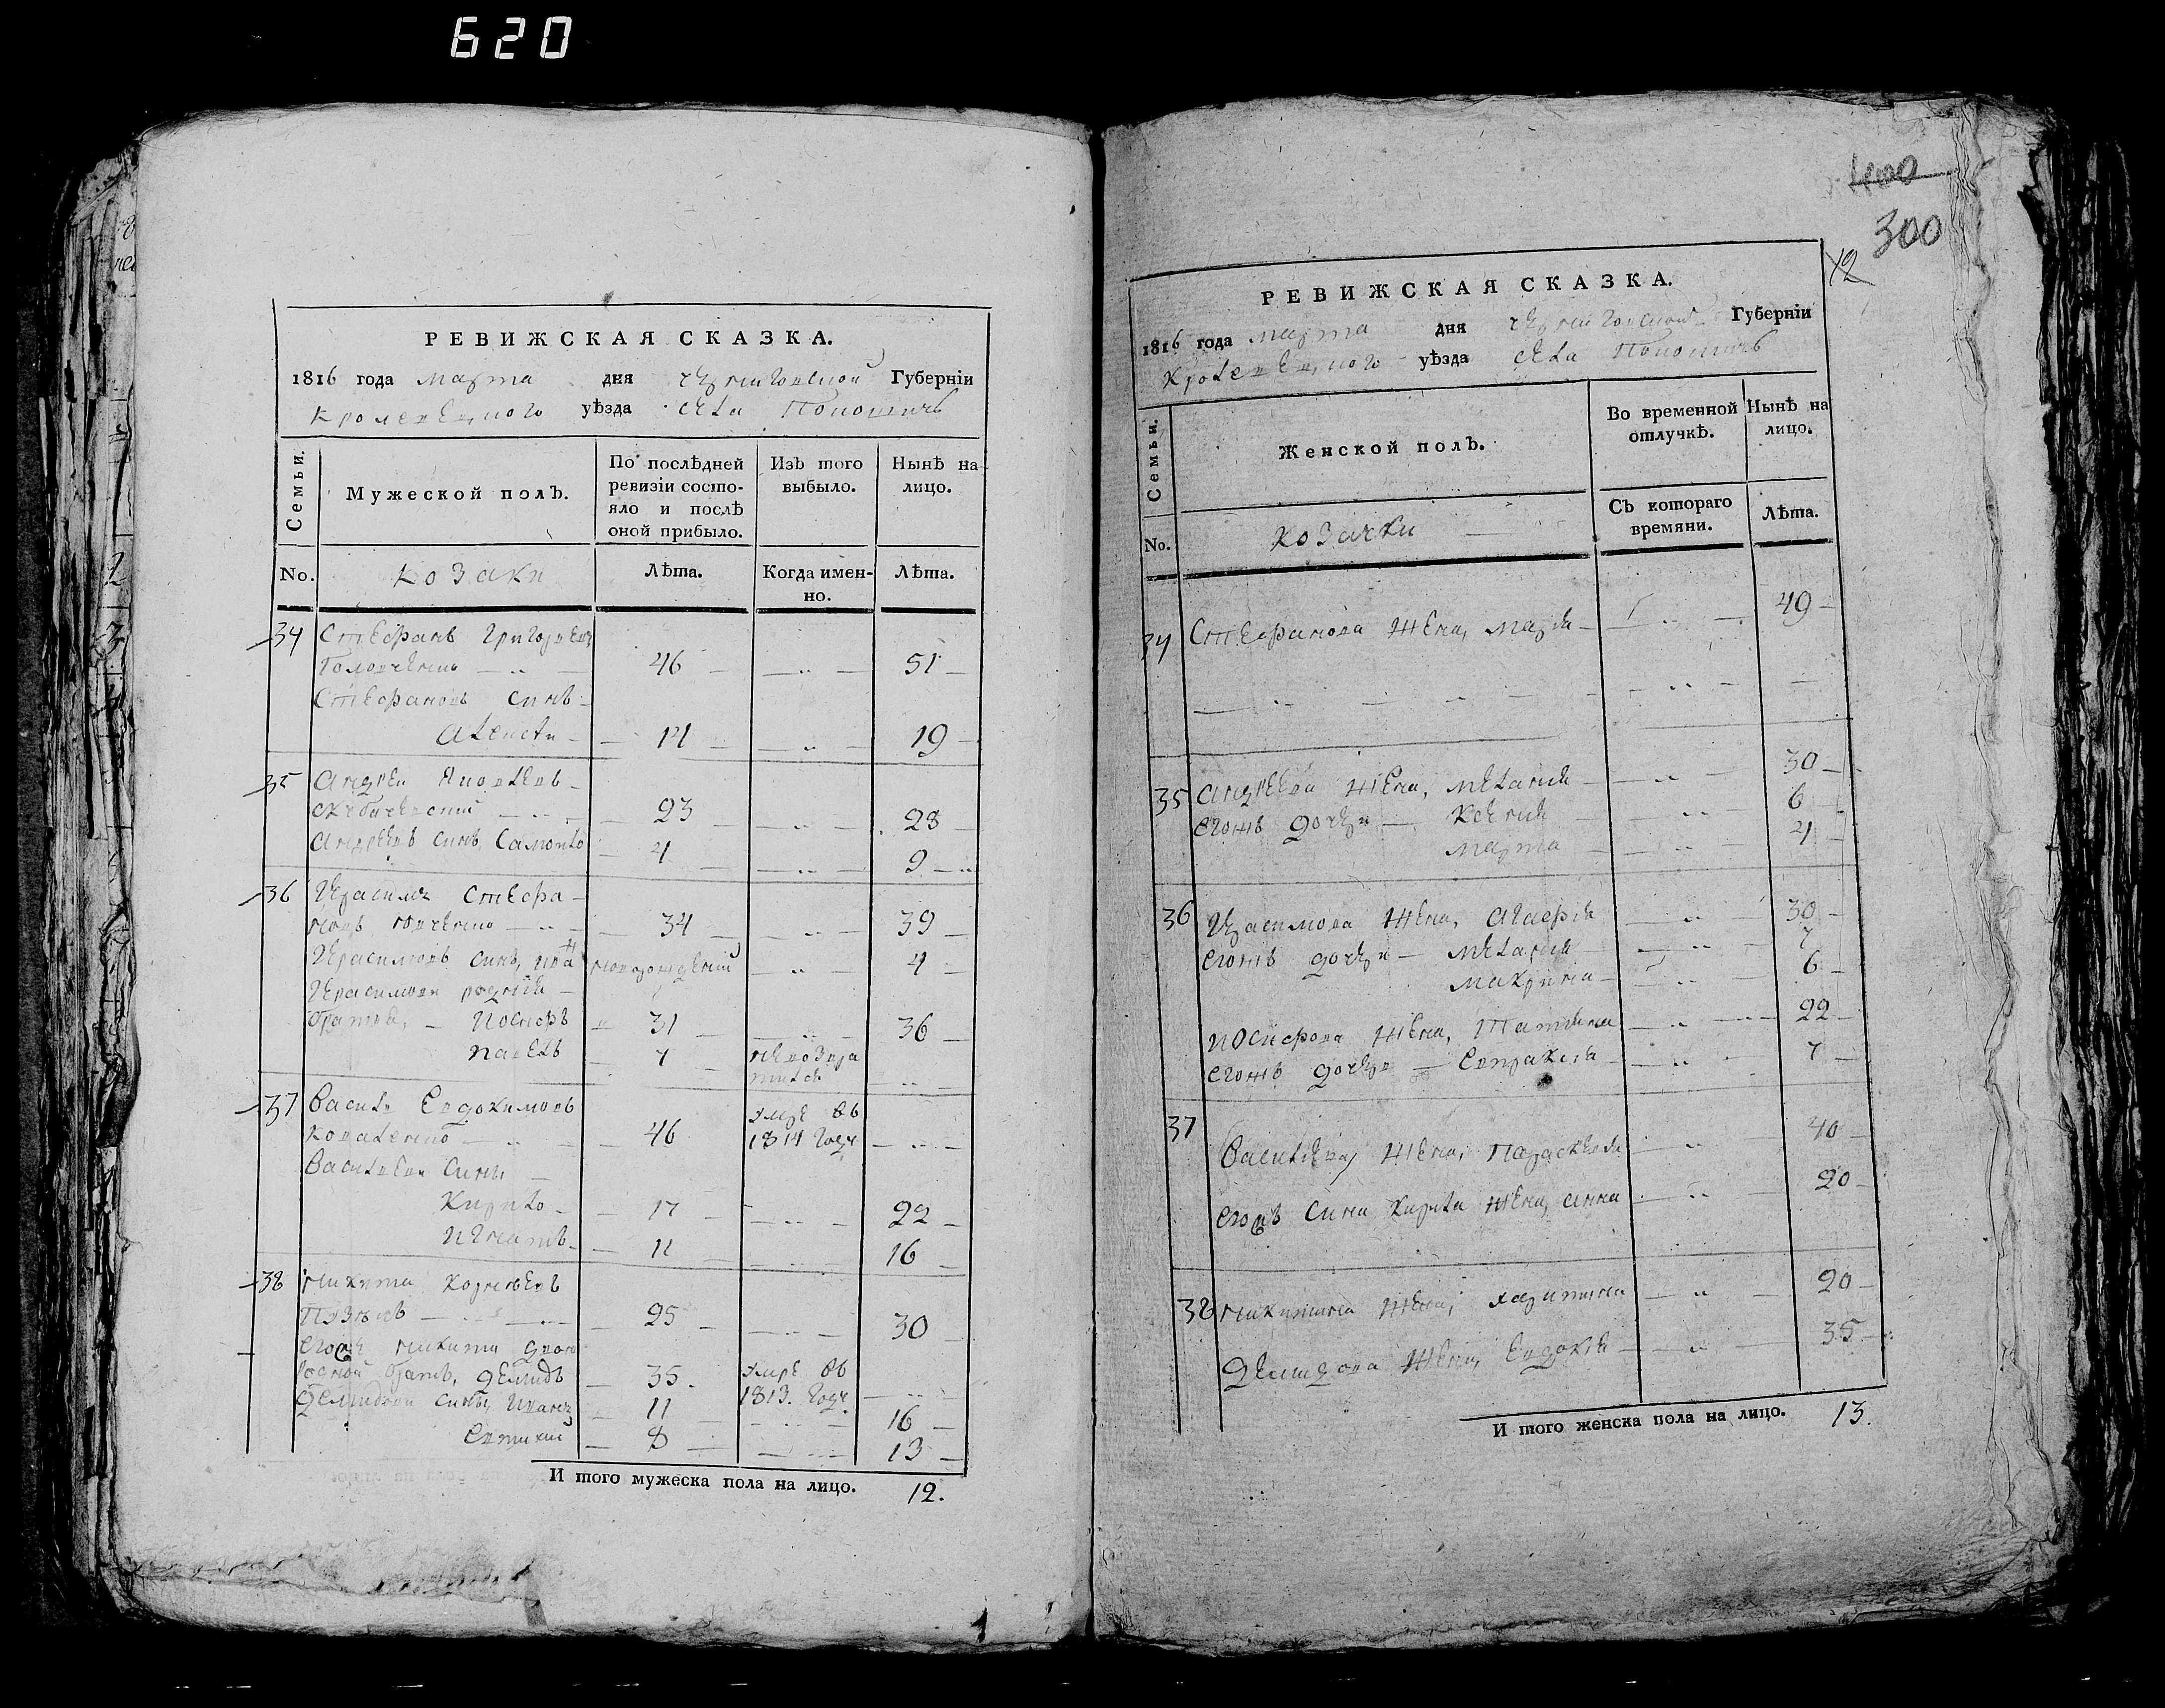 620
РЕВИЖСКАЯ СКАЗКА.
1816 года марта дня Черниговской Губерніи
Кролевецкого уѣзда села
Семьи.
Мужеской полъ.
По послѣдней ревизіи состояло и послѣ оной прибыло.
Изъ того выбыло.
Нынѣ на лицо.
No.
козаки
Лѣта.
Когда именно.
Лѣта.
34 Стефанъ Григорьевъ
46 51
Стефановъ синъ
Алексѣй 14 19
35 Андрей Яковлевъ
23 28
Андреевъ синъ, Самойло 4 9
36 Герасимъ Стефа
новъ 34 39
Герасимовъ синъ, Ива новорожденній 4
Герасимови роднія
братья, Иосифъ 31 36
Павелъ 7
37 Василь Евдокимовъ умре въ
Коваленко 46 1814 году
Василеви сини
Кирило 17 22
Игнатъ 11 16
38 Никита Корнѣевъ
25 30
Никити двою
родной братъ, Демидъ 35. умре въ
1813. году
Демидови сини, Иванъ 11 16
Евтихий 8 13
И того мужеска пола на лицо. 12.
400
300
12
РЕВИЖСКАЯ СКАЗКА.
1816 года марта дня Черниговской Губерніи
Кролевецкого уѣзда села
Семьи.
Женской полъ.
Во временной отлучкѣ.
Нынѣ на лицо.
No.
козачки
Съ котораго времяни.
Лѣта.
34 Стефанова жена, Марія 49
35 Андреева жена, Меланія 30
егожъ дочери Ксенія 6
Марта 4
36 Герасимова жена, Агафія 30
егожъ дочери Меланія 7
Макрина 6
Иосифова жена, Татіяна 22
егожъ дочерь Евпраксія 7
37 Василіева жена, Параскевія 40
егожъ сина Кирила жена, Анна 20
38 Никитина жена, Харитина 20
Демидова жена, Евдокія 35
И того женска пола на лицо. 13.